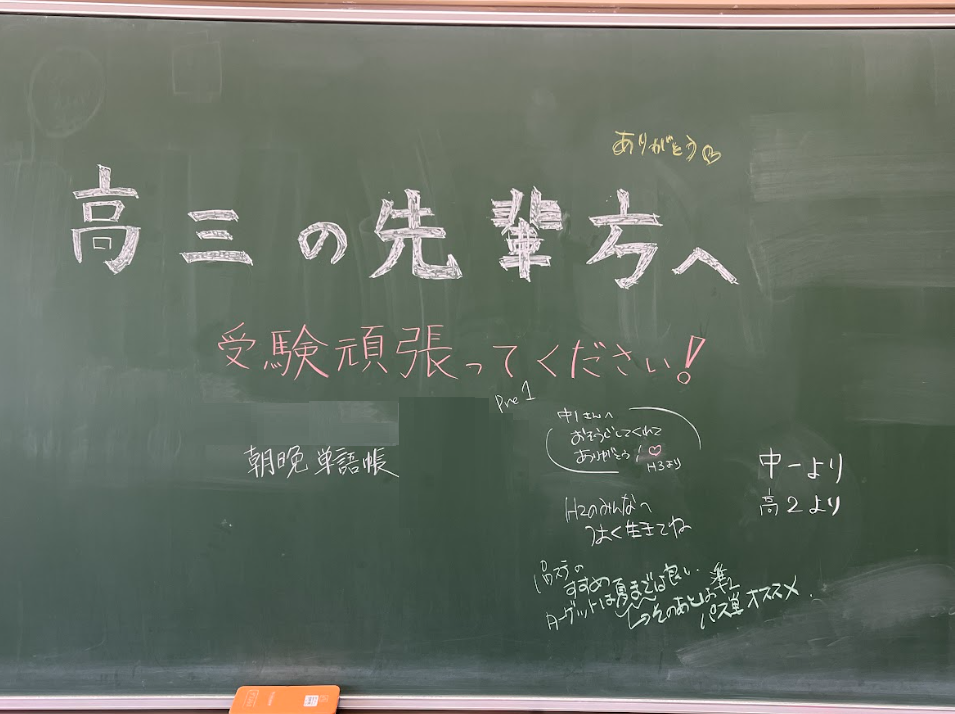 ありがとう♡
高三の先輩方へ
受験頑張ってください!
Pre1
中1さんへ
おそうじしてくれて
ありがとう!♡
H3より
朝晩単語帳
中一より
高2より
H2のみんなへ
つよく生きてね
すすめ
ターゲットは夏までは良い
そのあとは準1
パス単オススメ